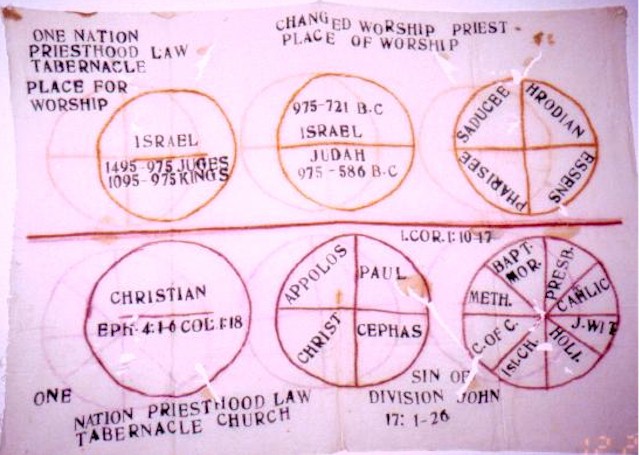 ONE NATION
PRIESTHOOD LAW
TABERNACLE
PLACE FOR
WORSHIP
CHANGED WORSHIP PRIEST
PLACE OF WORSHIP
ISRAEL
1495-975 JUGES
1095-975 KINGS
975-721 B.C
ISRAEL
JUDAH
975-586 B.C
SADUCEE
HRODIAN
PHARISEE
ESSENS
1.COR.1:10-17
CHRISTIAN
EPH-4:1-6 COL.1:18
APPOLOS
PAUL
CHRIST
CEPHAS
BAPT.
MOR.
PRESB.
METH.
CAHLIC
C-OF C.
J.WIT
1St.CH.
HOLI.
ONE
NATION PRIESTHOOD LAW
TABERNACLE CHURCH
SIN OF
DIVISION JOHN
17: 1-26